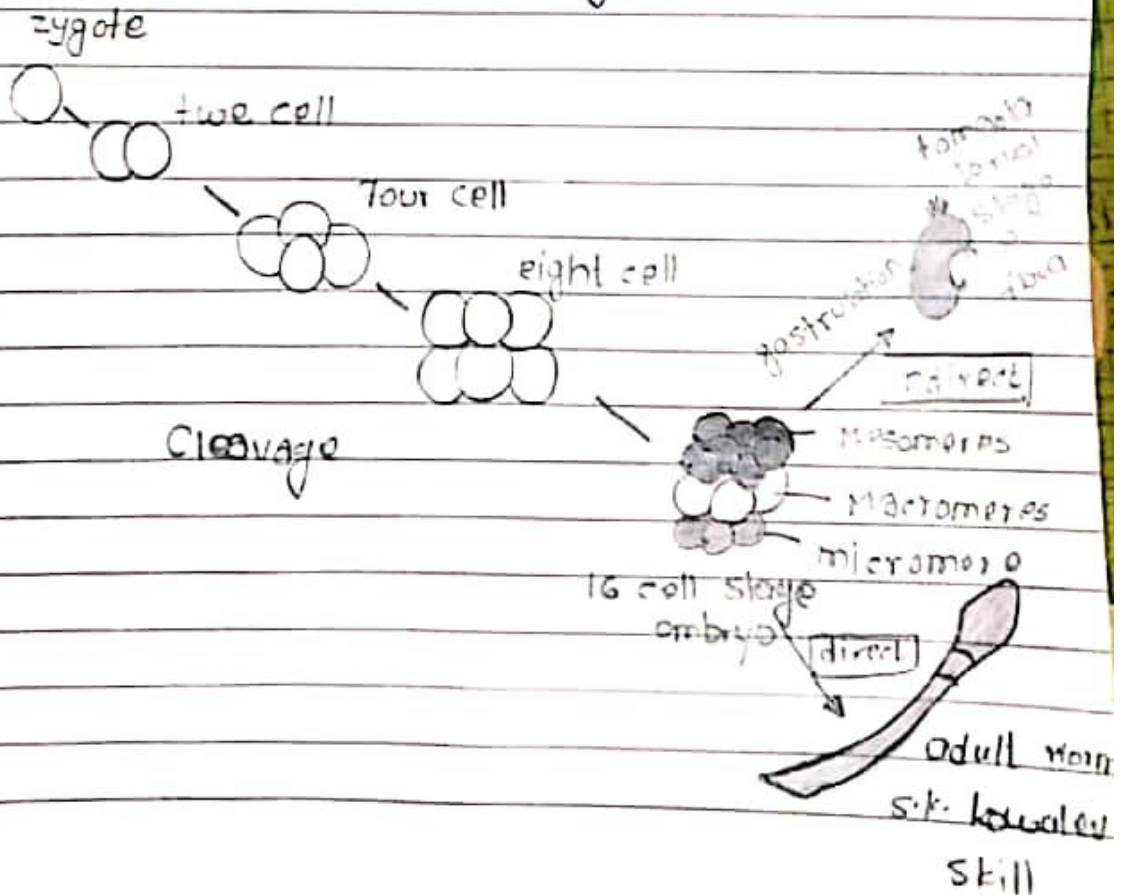 zygote
twe cell
Four cell
eight cell
Cleavage
gastrulation
larval
stage
direct
Mesomeres
Macromeres
micromere
16 cell stage
embryo
direct
adult worm
s.k. kowalev
skill